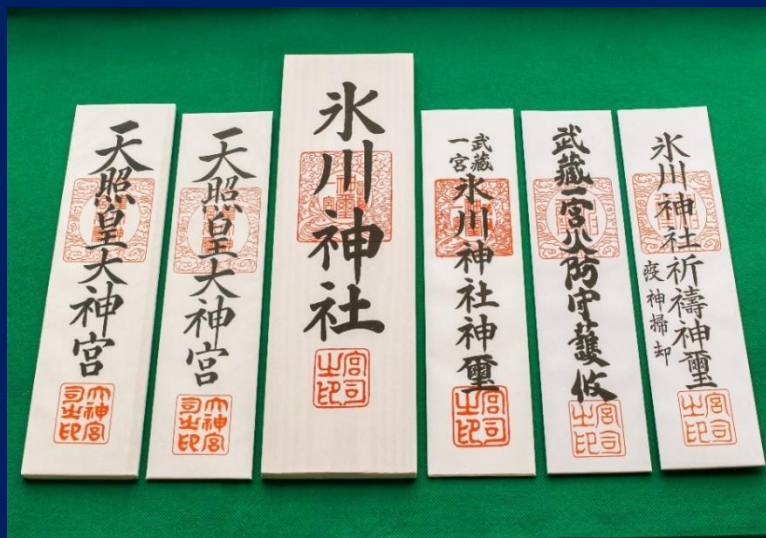 天照皇大神宮
大神宮
司之印
天照皇大神宮
大神宮
司之印
氷川神社
宮司
之印
武藏
一宮
氷川神社神璽
宮司
之印
武藏一宮火防守護攸
宮司
之印
氷川神社祈禱神璽
疫神掃却
宮司
之印